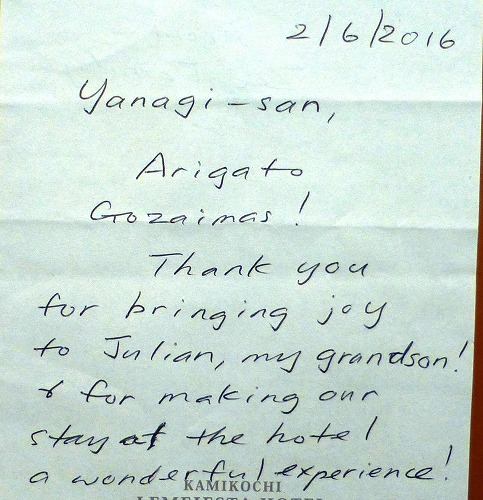 2/6/2016
Yanagi-san,
Arigato
Gozaimas!
Thank you
for bringing joy
to Julian, my grandson!
& for making our
stay at the hotel
a wonderful experience!
KAMIKOCHI
LEMEIESTA HOTEL